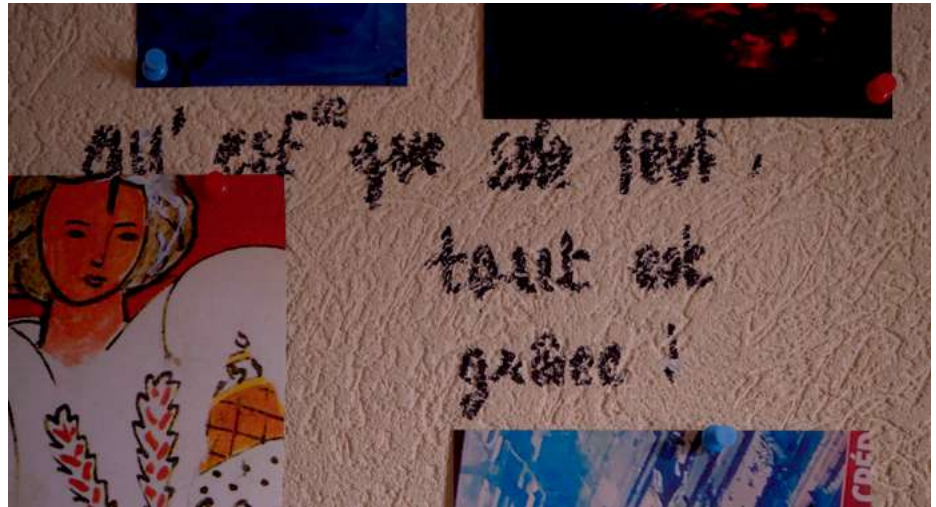 qu'est ce que cela fait,
tout est
grâce !
CRÉD